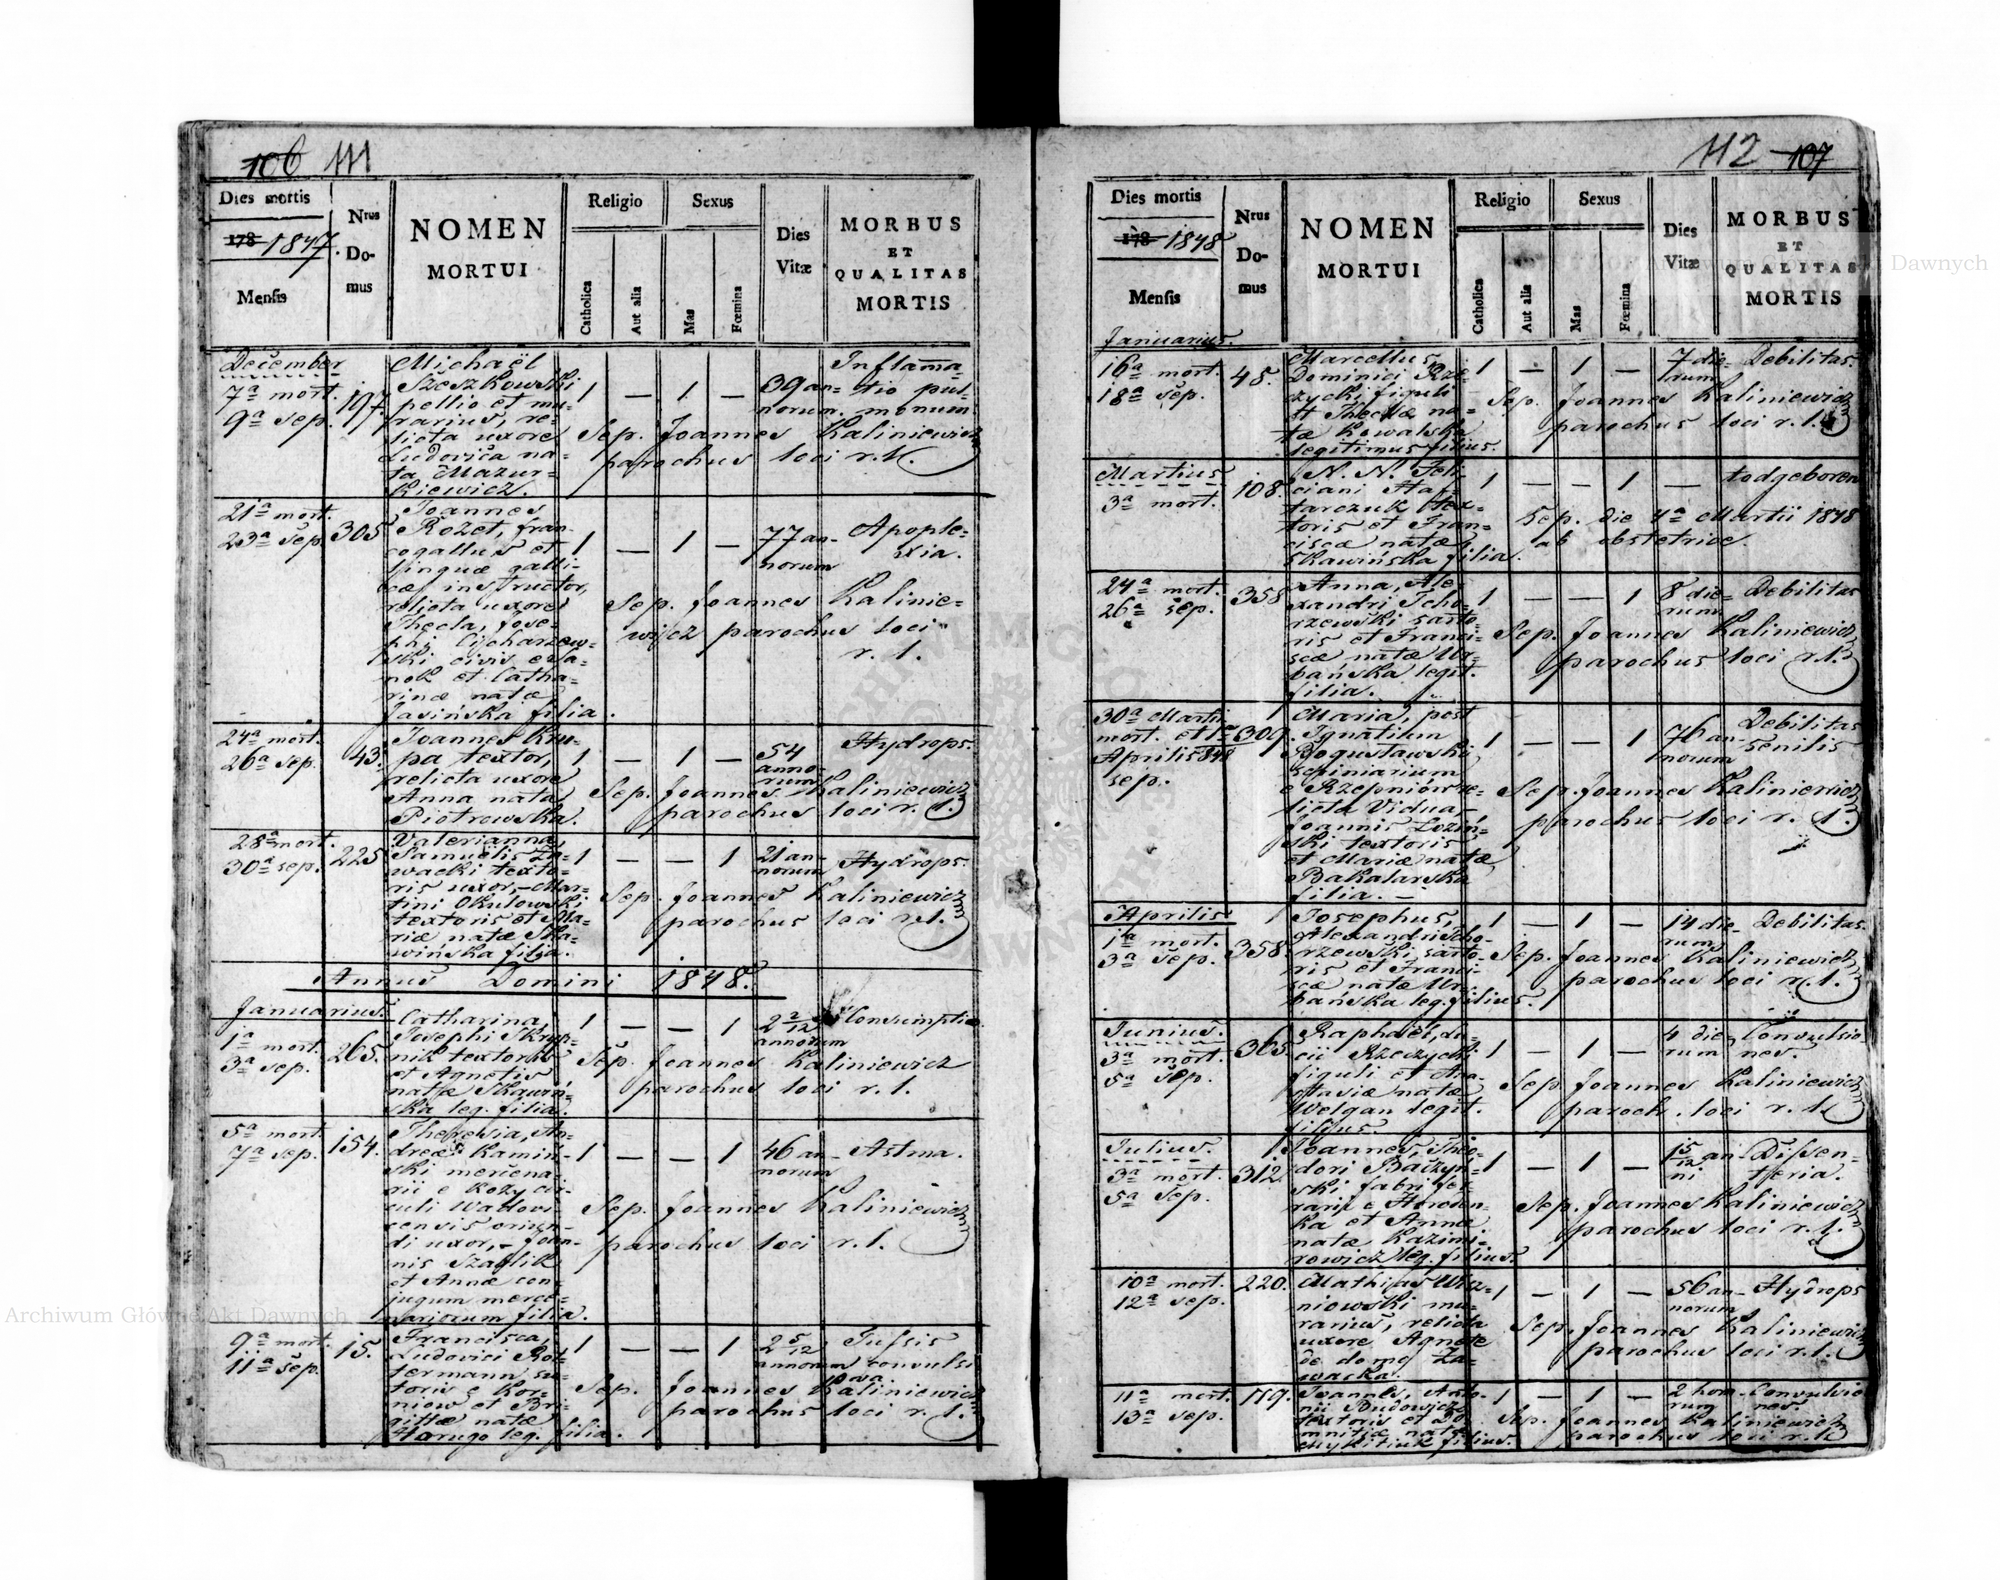 106 111
Dies mortis
178 1847.
Mensis
Nrus
Do-
mus
NOMEN
MORTUI
Religio
Catholica
Aut alia
Sexus
Mas
Fœmina
Dies
Vitæ
MORBUS
ET
QUALITAS
MORTIS
December
7a mort.
9a sep.
197.
Michaël
Szeszkowski
pellio et mu-
rarius, re-
licta uxore
Ludovica na-
ta Mazur-
kiewicz.
1 — 1 —
39 an-
norum.
Inflama-
tio pul-
monum
Sep. Joannes Kaliniewicz
parochus loci r. l.
21a mort.
23a sep.
305
Joannes
Rozet, fran-
cogallus et
linquæ galli-
cæ instructor,
relicta uxore
Thecla, Jose-
phi Cicharzew-
ski civis e Sa-
nok et Catha-
rinæ natæ
Jasińska filia.
1 — 1 —
77 an-
norum
Apople-
xia.
Sep. Joannes Kalinie-
wicz parochus loci
r. l.
24a mort.
26a sep.
43.
Joannes Kru-
pa textor,
relicta uxore
Anna nata
Piotrowska.
1 — 1 —
54
anno-
rum
Hydrops.
Sep. Joannes Kaliniewicz
parochus loci r. l.
28a mort.
30a sep.
225
Valerianna,
Samuelis Za-
wacki texto-
ris uxor, Mar-
tini Okulowski
textoris et Ma-
riæ natæ Ska-
wińska filia.
1 — — 1
21 an-
norum
Hydrops.
Sep. Joannes Kaliniewicz
parochus loci r. l.
Annus Domini 1848.
Januarius.
1a mort.
3a sep.
265.
Catharina
Josephi Skryp-
nik textoris
et Agnetis
natæ Skawiń-
ska leg. filia.
1 — — 1
2 2/12
annorum
Consumptio
Sep. Joannes Kaliniewicz
parochus loci r. l.
5a mort.
7a sep.
154.
Theresia, An-
dreæ Kamin-
ski mercena-
rii e Kozy cir-
culi Wadovi-
censis oriun-
di uxor, Joan-
nis Szaflik
et Annæ con-
jugum merce-
nariorum filia.
1 — — 1
46 an-
norum
Astma.
Sep. Joannes Kaliniewicz
parochus loci r. l.
9a mort.
11a sep.
15.
Francisca,
Ludovici Rot-
termann, su-
toris e Kor-
niow et Bri-
gittæ natæ
Harugo leg. filia.
1 — — 1
2 5/12
annorum
Tussis
convulsi
va.
Sep. Joannes Kaliniewicz
parochus loci r. l.
112 107
Dies mortis
178 1848
Mensis
Nrus
Do-
mus
NOMEN
MORTUI
Religio
Catholica
Aut alia
Sexus
Mas
Fœmina
Dies
Vitæ
MORBUS
ET
QUALITAS
MORTIS
Januarius.
16a mort.
18a sep.
45.
Marcellus,
Dominici Rze-
czycki figuli
et Theclæ na-
tæ Kowalska
legitimus filius.
1 — 1 —
7 die-
rum
Debilitas.
Sep. Joannes Kaliniewicz
parochus loci r. l.
Martius
3a mort.
108.
N. N. Feli-
ciani Ha-
tarczuk tex-
toris et Fran-
ciscæ natæ
Skawińska filia.
1 — — 1
—
todgeboren
Sep. die 4a Martii 1848
ab obstetrice.
24a mort.
26a sep.
358
Anna, Ale-
xandri Tcho-
rzewski sarto-
ris et Franci-
scæ natæ Ur-
bańska legit.
filia.
1 — — 1
8 die-
rum
Debilitas
Sep. Joannes Kaliniewicz
parochus loci r. l.
30a Martii
mort. et 1a
Aprilis 848
sep.
309.
Maria, post
Ignatium
Bogusławski
scriniarium
e Rzepniów re-
licta Vidua
Joannis Łoziń-
ski textoris
et Mariæ natæ
Bakalarska
filia.
1 — — 1
76 an-
norum
Debilitas
senilis
Sep. Joannes Kaliniewicz
parochus loci r. l.
Aprilis
1a mort.
3a sep.
358.
Josephus,
Alexandri Tcho-
rzewski sarto-
ris et Franci-
scæ natæ Ur-
bańska leg. filius.
1 — 1 —
14 die-
rum
Debilitas.
Sep. Joannes Kaliniewicz
parochus loci r. l.
Junius.
3a mort.
5a sep.
365
Raphaël, Lu-
cii Rzeczycki
figuli et Ana-
stasiæ natæ
Welgan legit.
filius.
1 — 1 —
4 die-
rum
Convulsio-
nes.
Sep. Joannes Kaliniewicz
paroch. loci r. l.
Julius.
3a mort.
5a sep.
312.
Joannes, Theo-
dori Baczyń-
ski fabri fer-
rarii e Horoden-
ka et Annæ
natæ Kazimi-
rowicz leg. filius.
1 — 1 —
1 5/12 an-
ni
Dissen-
teria.
Sep. Joannes Kaliniewicz
parochus loci r. l.
10a mort.
12a sep.
220.
Mathias Wisz-
niowski mu-
rarius, relicta
uxore Agnete
de domo Za-
wacka.
1 — 1 —
56 an-
norum
Hydrops
Sep. Joannes Kaliniewicz
parochus loci r. l.
11a mort.
13a sep.
119.
Joannes, Anto-
nii Budowicz
textoris et Do-
mnitiæ natæ
filius.
1 — 1 —
2 hora-
rum
Convulsio
nes.
Sep. Joannes Kaliniewicz
parochus loci r. l.
Archiwum Główne Akt Dawnych
Archiwum Główne Akt Dawnych